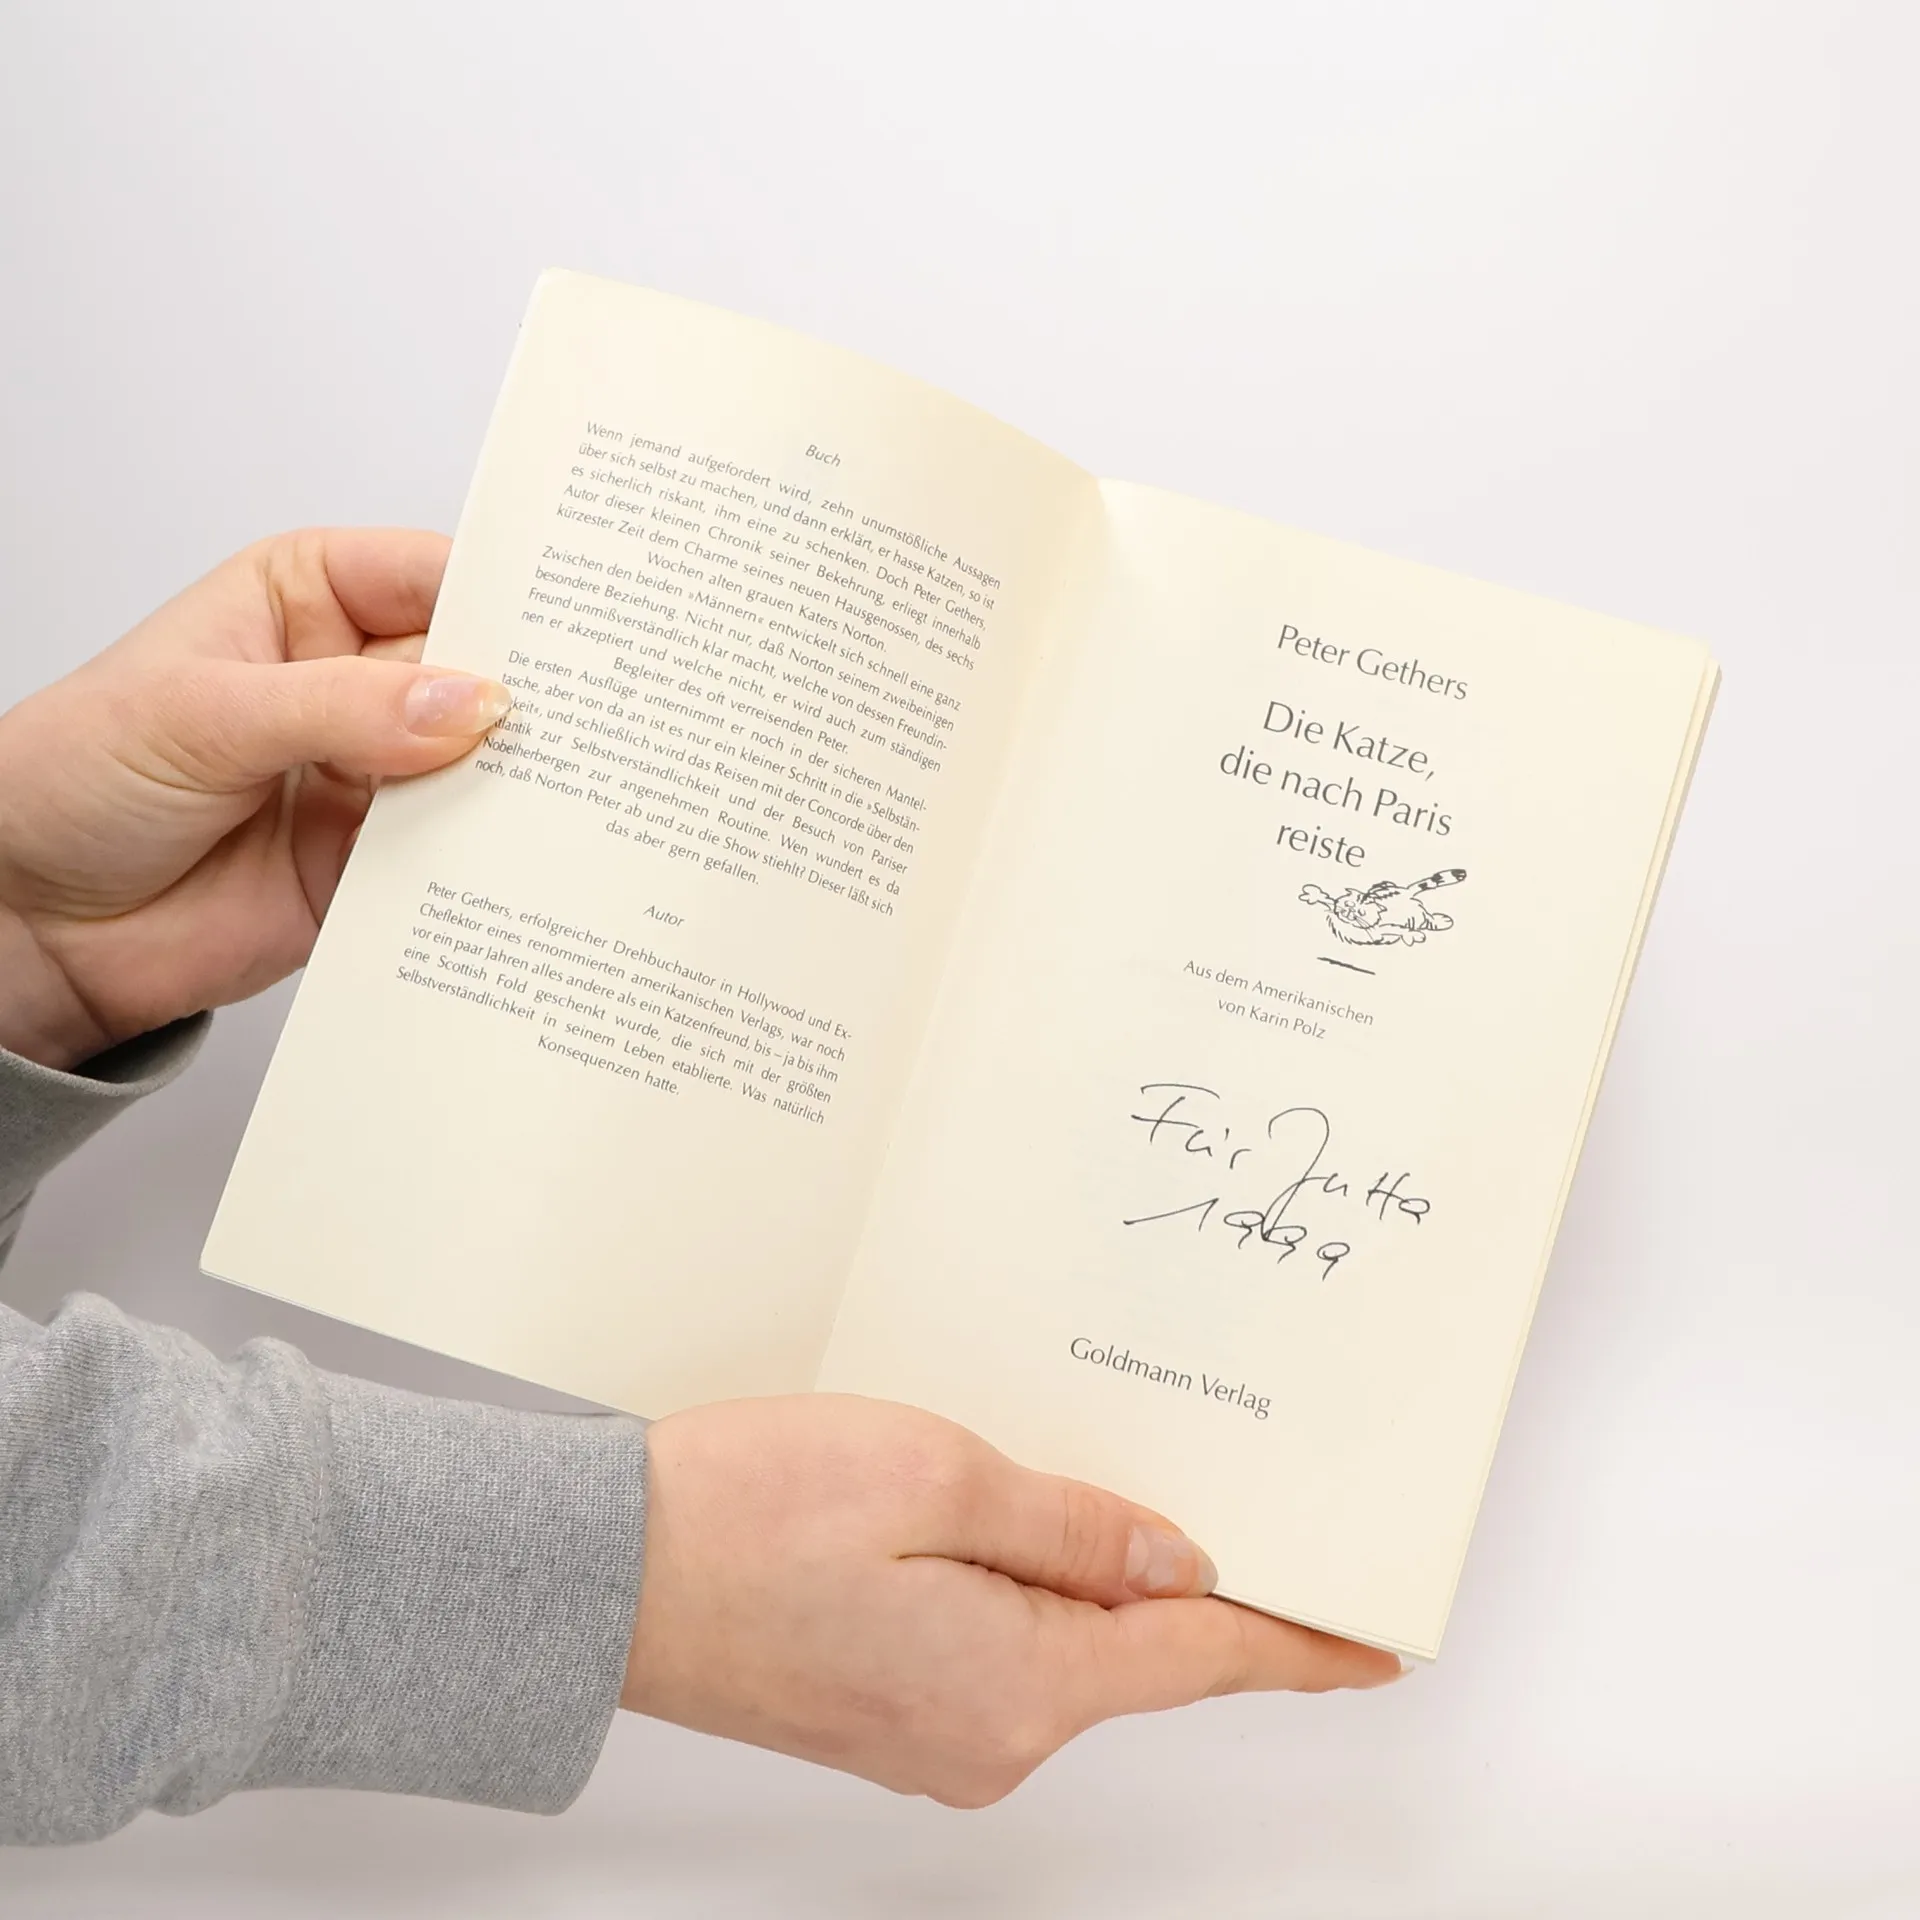 Buch
Wenn jemand aufgefordert wird, zehn unumstößliche Aussagen
über sich selbst zu machen, und dann erklärt, er hasse Katzen, so ist
es sicherlich riskant, ihm eine zu schenken. Doch Peter Gethers,
Autor dieser kleinen Chronik seiner Bekehrung, erliegt innerhalb
kürzester Zeit dem Charme seines neuen Hausgenossen, des sechs
Wochen alten grauen Katers Norton.
Zwischen den beiden »Männern« entwickelt sich schnell eine ganz
besondere Beziehung. Nicht nur, daß Norton seinem zweibeinigen
Freund unmißverständlich klar macht, welche von dessen Freundin-
nen er akzeptiert und welche nicht, er wird auch zum ständigen
Begleiter des oft verreisenden Peter.
Die ersten Ausflüge unternimmt er noch in der sicheren Mantel-
tasche, aber von da an ist es nur ein kleiner Schritt in die »Selbstän-
gkeit«, und schließlich wird das Reisen mit der Concorde über den
Atlantik zur Selbstverständlichkeit und der Besuch von Pariser
Nobelherbergen zur angenehmen Routine. Wen wundert es da
noch, daß Norton Peter ab und zu die Show stiehlt? Dieser läßt sich
das aber gern gefallen.
Autor
Peter Gethers, erfolgreicher Drehbuchautor in Hollywood und Ex-
Cheflektor eines renommierten amerikanischen Verlags, war noch
vor ein paar Jahren alles andere als ein Katzenfreund, bis – ja bis ihm
eine Scottish Fold geschenkt wurde, die sich mit der größten
Selbstverständlichkeit in seinem Leben etablierte. Was natürlich
Konsequenzen hatte.
Peter Gethers
Die Katze,
die nach Paris
reiste
Aus dem Amerikanischen
von Karin Polz
Für Jutta
1999
Goldmann Verlag